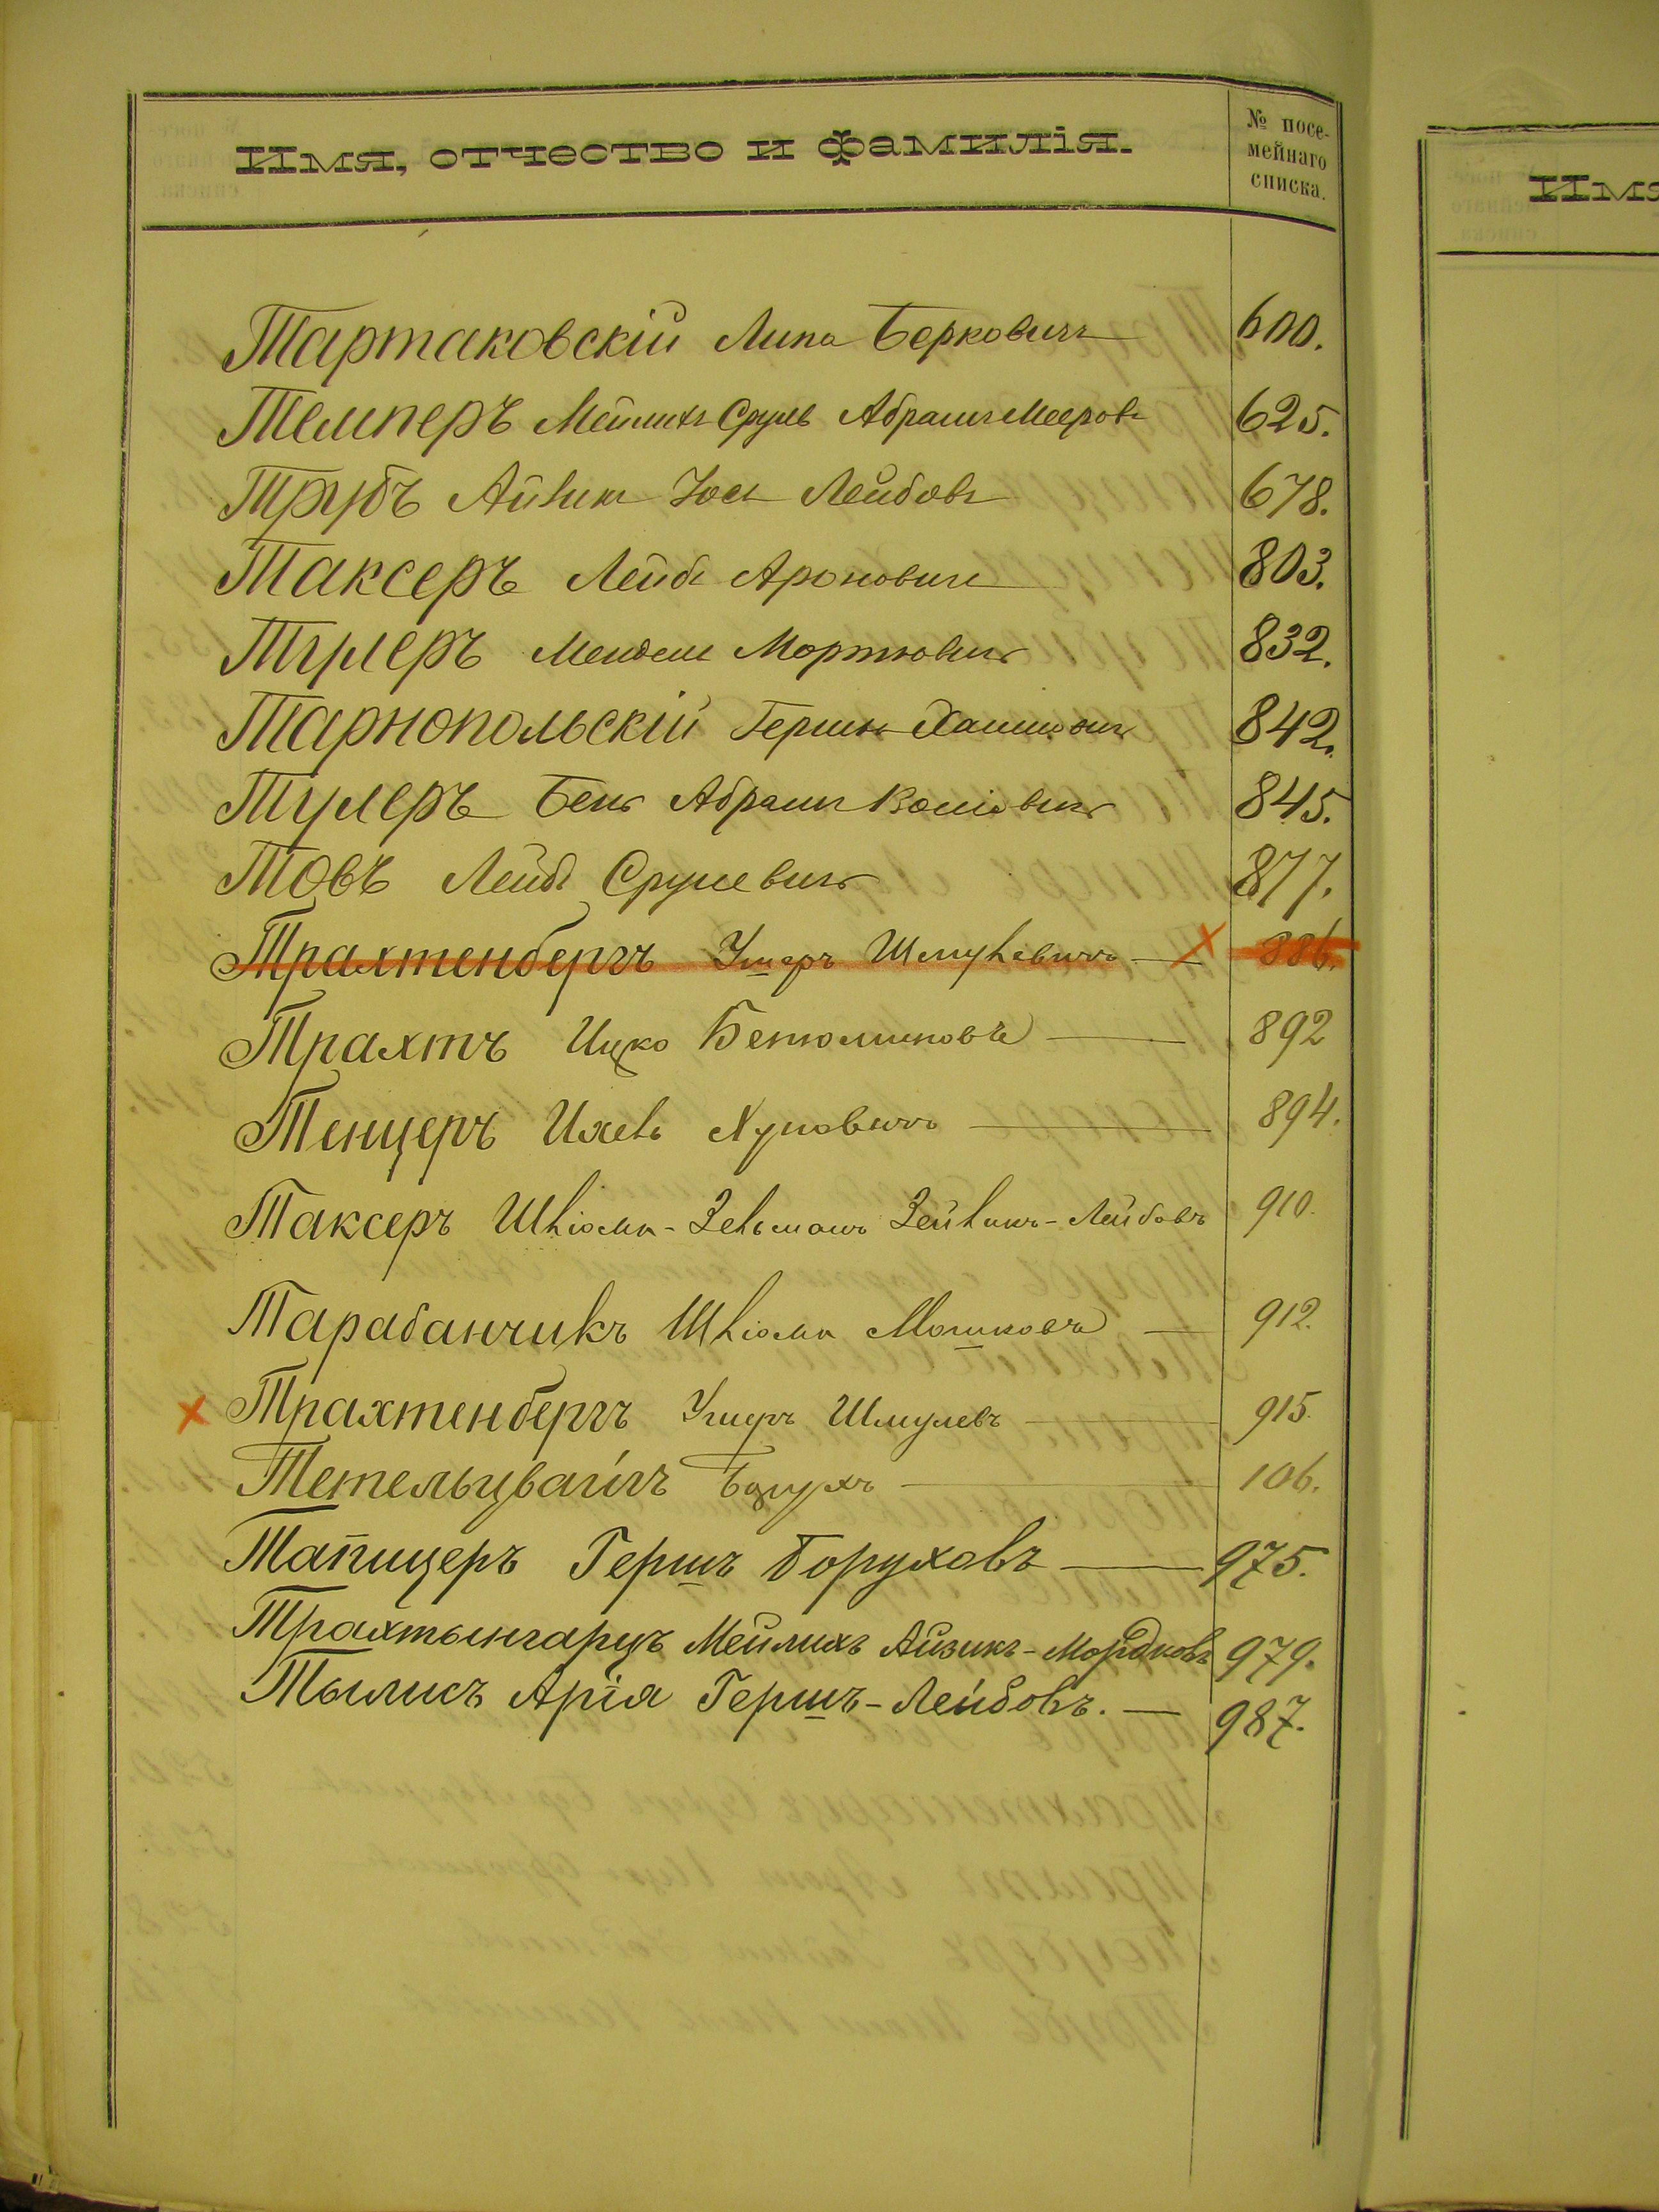 Имя, отчество и фамилія.
№ посе-
мейнаго
списка.
Тартаковскій Липа Берковичъ 600.
Темперъ Мейлихъ Сруль Абрамъ Мееровъ 625.
Трубъ Айзикъ Іось Лейбовъ 678.
Таксеръ Лейбъ Ароновичъ 803.
Тулеръ Мендель Мортковичъ 832.
Тарнопольскій Гершко Хаимовичъ 842.
Тулеръ Бенъ Абрамъ 845.
Товъ Лейбъ Срулевичъ 877.
Трахтенбергъ Ушеръ Шмулевичъ 886.
Трахтъ Ицко Бенюминовъ 892
Тенцеръ Ихель Хуновичъ 894.
Таксеръ Шліома-Зельманъ Зейликъ-Лейбовъ 910.
Тарабанчикъ Шліома Мошковъ 912.
Трахтенбергъ Ушеръ Шмулевъ 915.
Тетельцвайгъ Борухъ 106.
Тапицеръ Гершъ Боруховъ 975.
Трахтынгарцъ Мейлихъ Айзикъ-Мордковъ 979.
Тылисъ Арія Гершъ-Лейбовъ. 987.
Имя